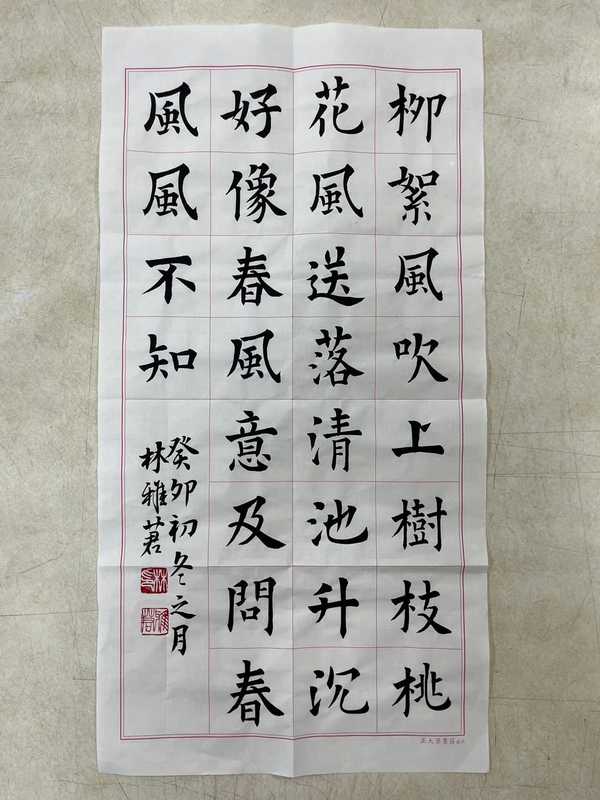 柳絮風吹上樹枝桃
花風送落清池升沉
好像春風意及問春
風風不知
癸卯初冬之月
林雅莙